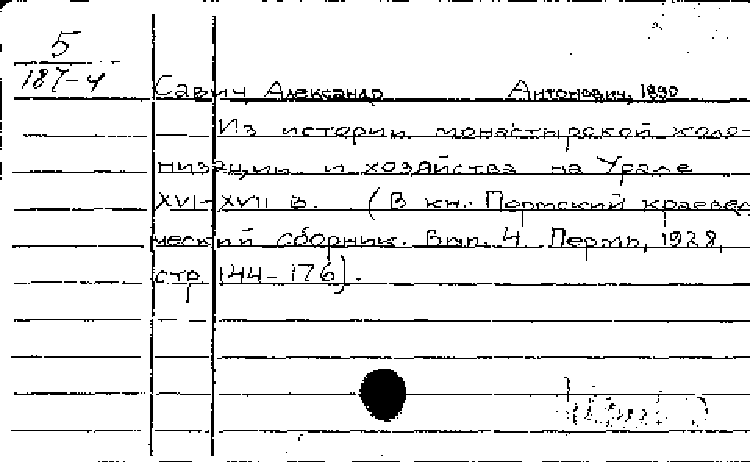 5
187-4
Савич, Александр Антонович, 1890
Из истории монастырской коло-
низации и хозяйства на Урале
XVI-XVII в. (В кн.: Пермский краевед-
ческий сборник. Вып. 4. Пермь, 1928,
стр. 144-176).